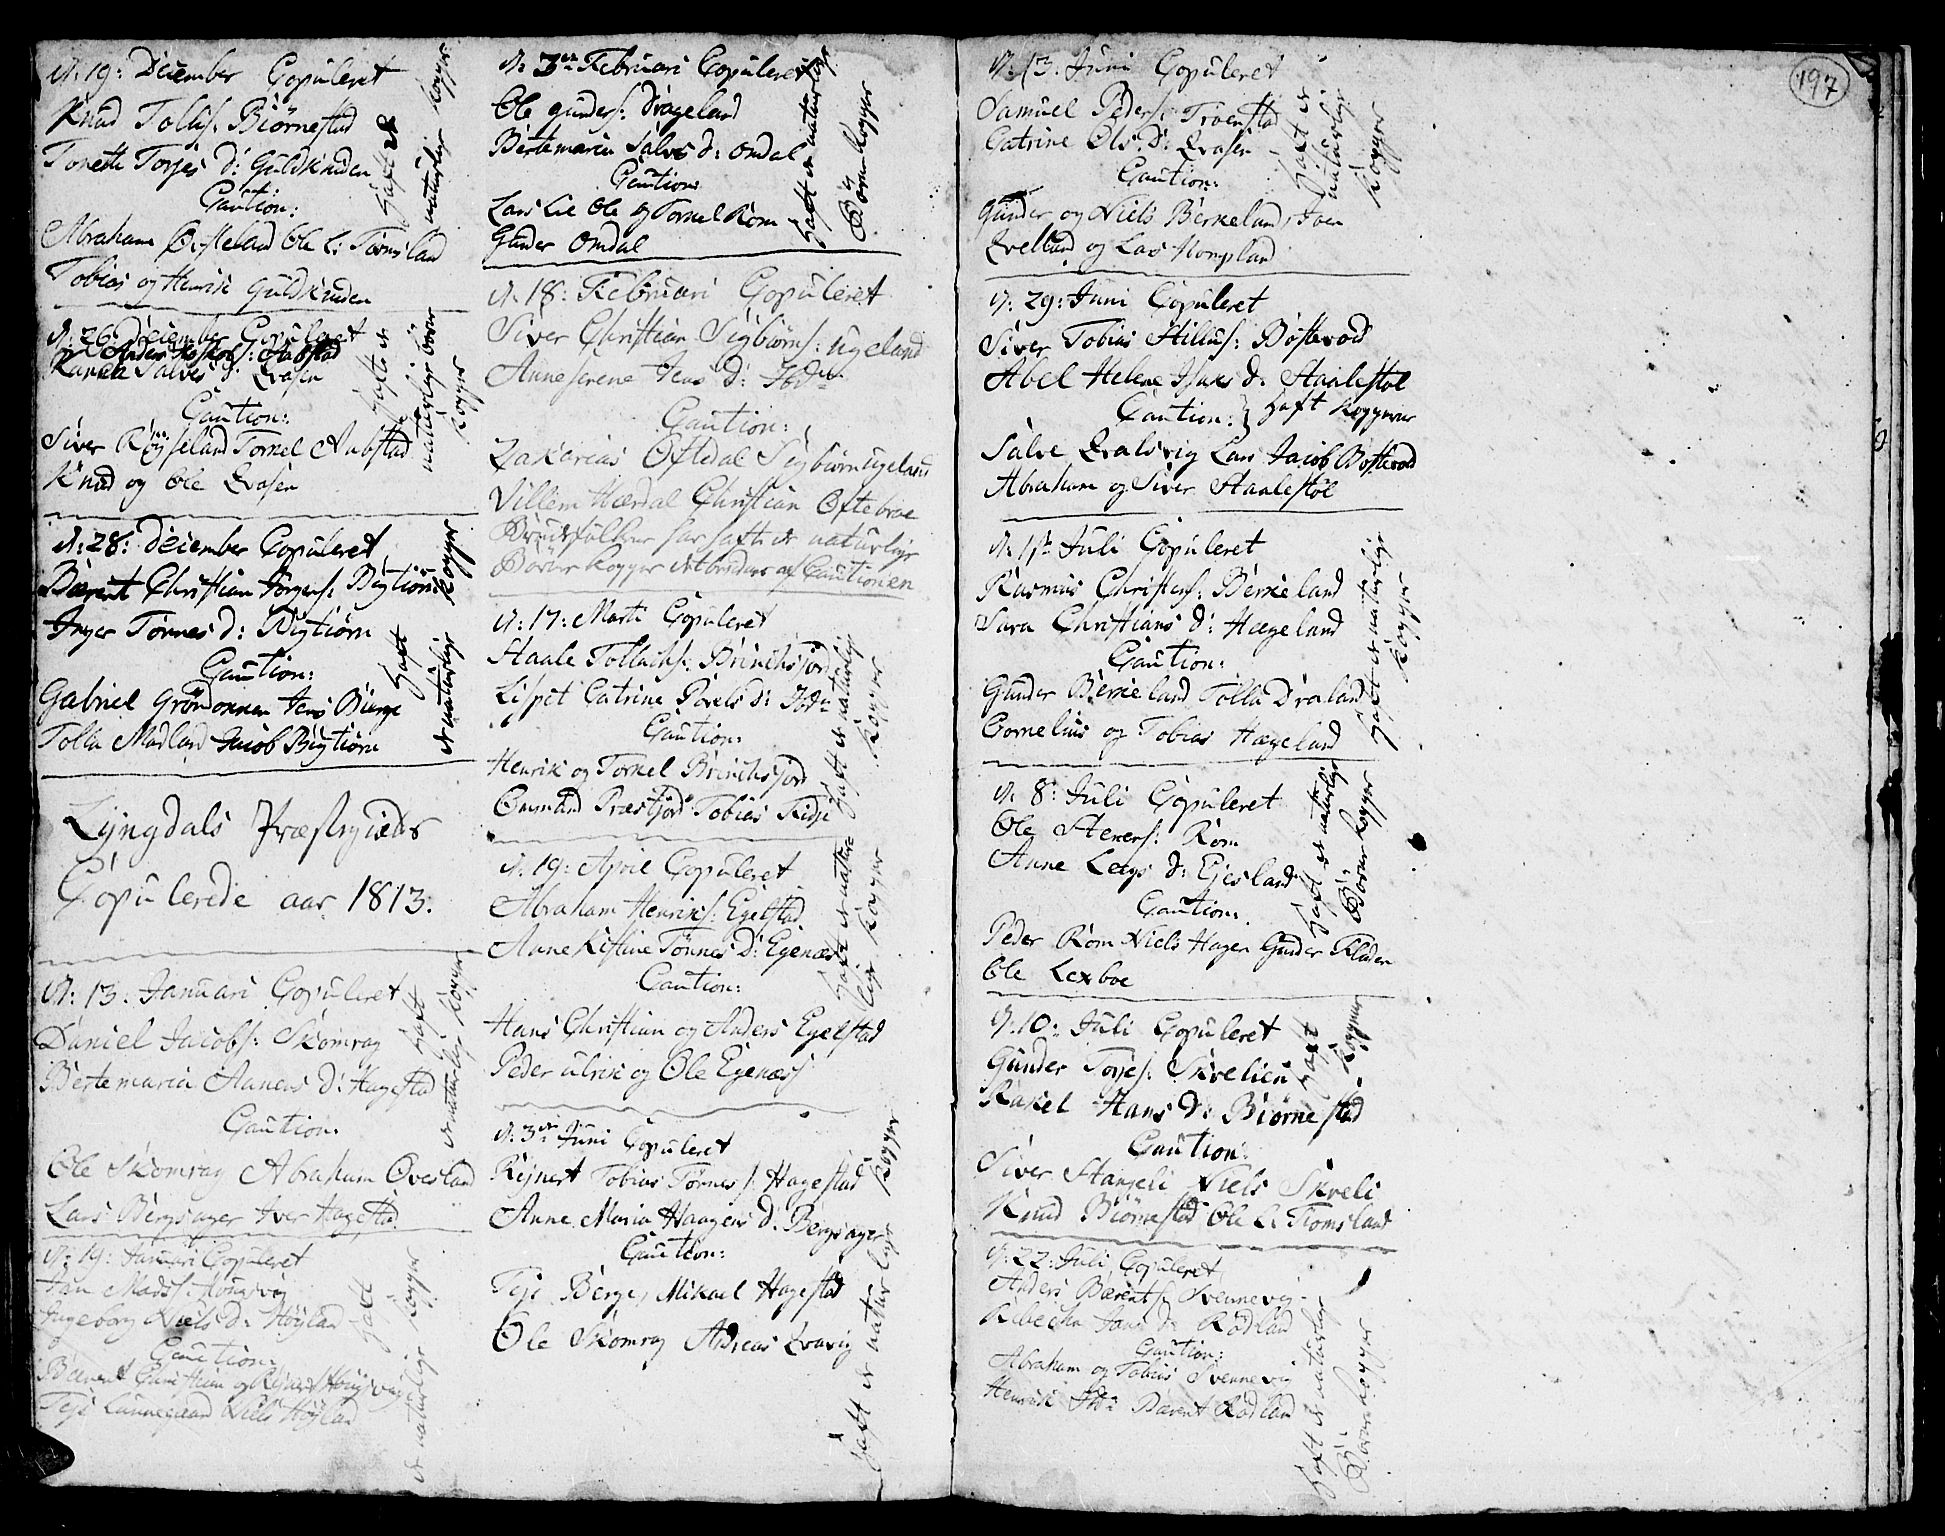 d: 19: December Copuleret
Knud Tollefs: Biörnestad
Tonette Torjes d: Guldknuden
Caution:
Abraham Ole L: Tomsland
Tobias og Henrik Guldknuden
haft er
naturlige Kopper
d: 26 December Copuleret
Anders
Salves d: Qvasen
Caution:
Siver Röyseland Tornel Aabstad
Knud og Ole Qvasen
hafte er
naturlige börne
Kopper
d: 28: December Copuleret
Bærent Christian Jörgens: Bigtiörn
Inger Tönnes d: Bigtiörn
Caution:
Gabriel Gröndokken Jens Bierge
Tolla Madland Jacob Bigtiörn
haft
er naturlige Kopper
Lyngdals Præstegields
Copulerede aar 1813.
d: 13: Januari Copuleret
Daniel Jacobs: Skomrag
Bertemaria Aanens d: Hagestad
Caution:
Ole Skomrag Abraham Ovesland
Lars Bergsager Iver Hagestad
haft
er naturlige Kopper
d: 19: Januari Copuleret
Jan Mads:
Ingeborg Niels d: Höyland
Caution:
Bærent Christian og Rejnert
Teje Lunnegaard Niels Höyland
haft
er naturlige Kopper
d: 3de Februari Copuleret
Ole Gunders: Drageland
Bertemaria Salves d: Omdal
Caution:
Lars Lie Ole og Tornel Rom
Gunder Omdal
haft er naturlige
Börne Kopper
d: 18: Februari Copuleret
Siver Christian Sigbiörns: Ugeland
Anneserene Jens d: Ibd.
Caution:
Zakarias Oftedal Sigbiörn Ugeland
Villem Hærdal Christian Oftebroe
Brudefolkene har haft de naturlige
Börne Kopper af Cautionen
d: 17: Marti Copuleret
Staale Tollachs: Brinchsjord
Lispet Catrine Povels d: Ibd.
Caution:
Henrik og Tornel Brinchsjord
Omund Præstjord Tobias Kidje
haft er naturlige
Kopper
d: 19: April Copuleret
Abraham Henriks: Egelstad
Anne Kistine Tönnes d: Egenæs
Caution:
Hans Christian og Anders Egelstad
Peder Ulrik og Ole Egenæss
haft er nature
lige Kopper
d: 3de Juni Copuleret
Rejnert Tobias Tönnes s: Hagestad
Anne Maria Haagens d: Bergsager
Caution:
Teje Berge, Mikael Hagestad
Ole Skomrag Andreas Qvavig
haft er naturlige Kopper
d: 13: Juni Copuleret
Samuel Peders:
Catrine Ols d: Qvasen
Caution:
Gunder og Niels Berkeland, Iven
Qvelland og Lars Kompland
haft er
naturlige
Kopper
d: 29: Juni Copuleret
Siver Tobias Hillus: Böstevod
Abel Helene Isaks d: Staalestöl
Caution: } haft Kopperne
Salve Qvalsvig Lars Jacob Böstevod
Abraham og Siver Staalestöl
d: 1ste Juli Copuleret
Rasmus Christens: Berkeland
Sara Christians d: Hægeland
Caution:
Gunder Berkeland Tolla Draland
Cornelius og Tobias Hægeland
haft er naturlige
Kopper
d: 8: Juli Copuleret
Ole Steners: Rom
Anne Legs d: Ejesland
Caution:
Peder Rom Niels Hagen Gunder Fladen
Ole Lexboe
haft er naturlige
Börne Kopper
d: 10: Juli Copuleret
Gunder Torjes: Skrelien
Rakel Hans d: Biörnestad
Caution:
Siver Stangeli Niels Skreli
Knud Biörnestad Ole L: Tomsland
haft
Kopperne
d: 22: Juli Copuleret
Anders Bærents: Svennevig
Rebecka Jans d: Rödland
Caution:
Abraham og Tobias Svennevig
Henrik Ibd: Bærent Rödland
haft er naturlige
Börne Kopper
197